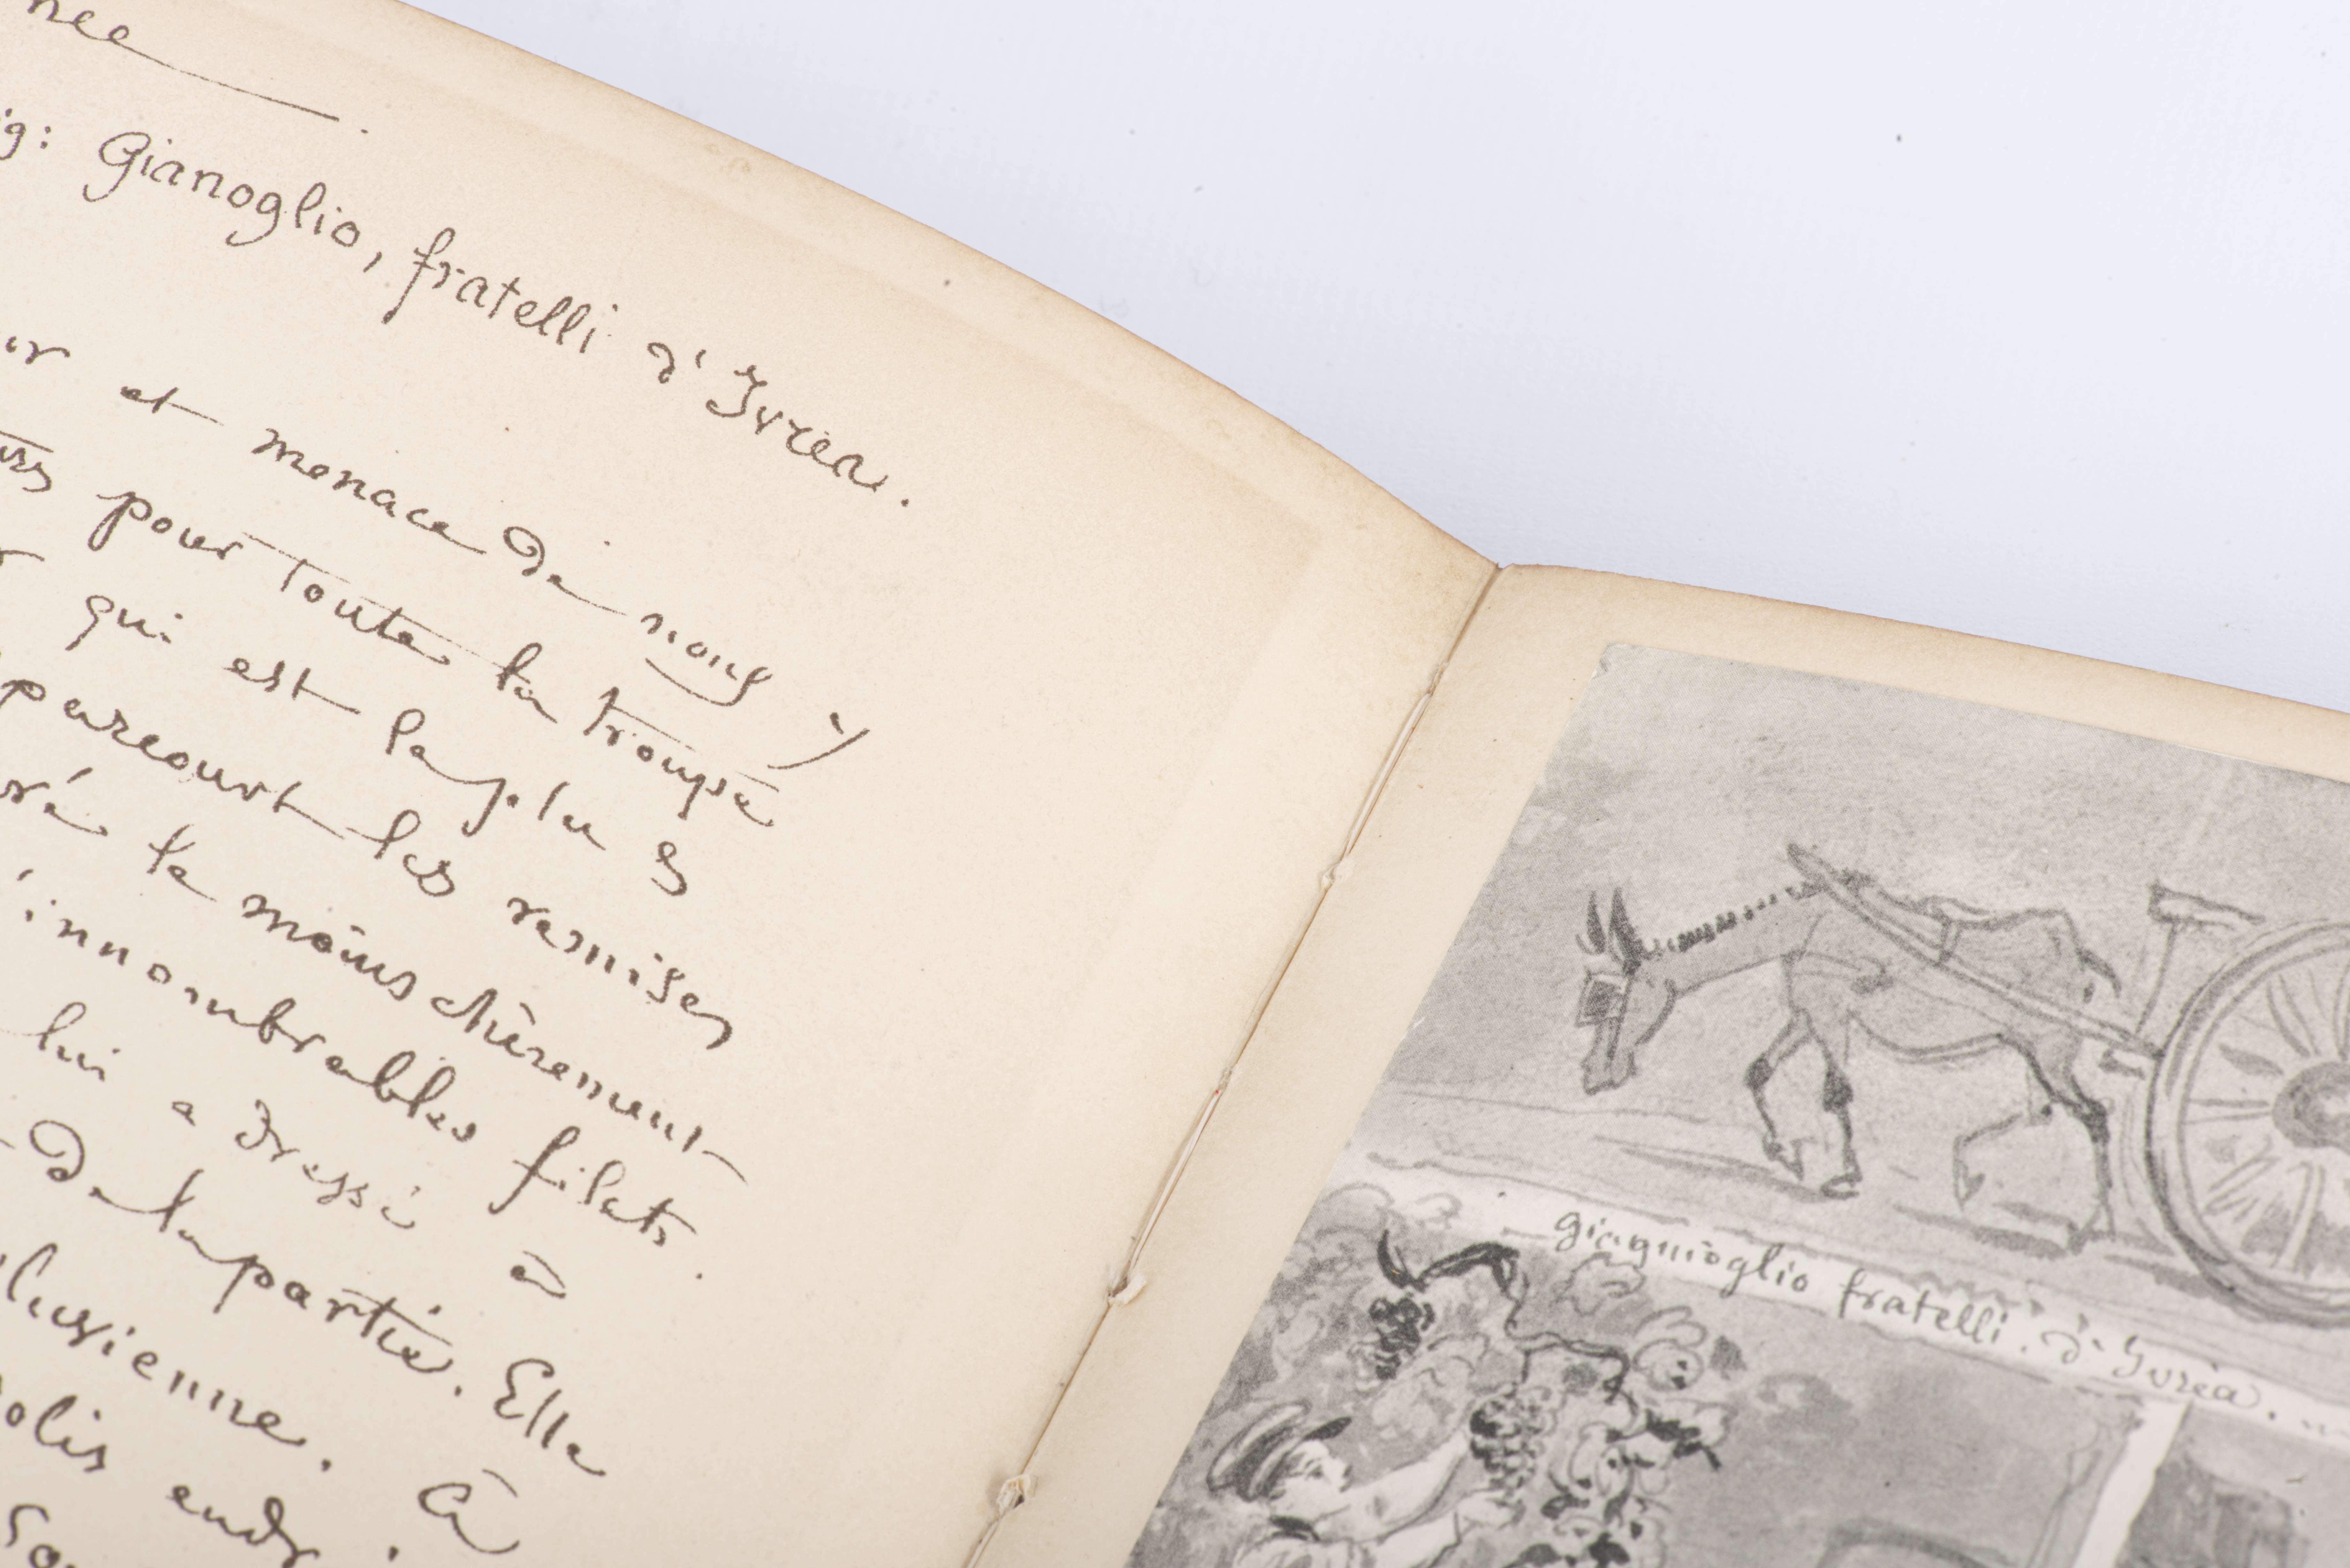 née
ig: Gianoglio, fratelli d'Ivrea.
et menace de nous y
pour toute la troupe
qui est la plu s
parcourt les remises
ré le moins chèrement
innombrables filets.
lui a dressé à
de la partie. Ella
lusienne. À
olis endr
giagnioglio fratelli. d'Ivrea.